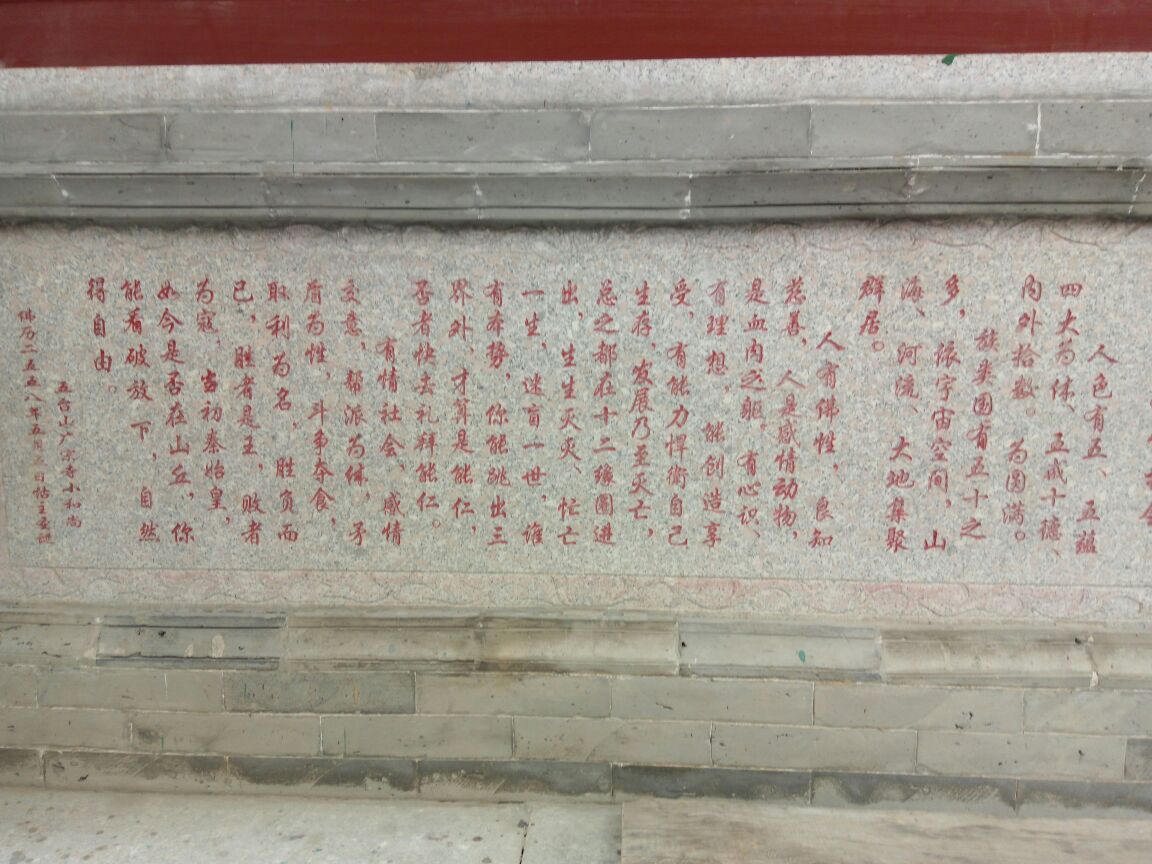 人色有五、五蕴
四大为体、五戒十德、
内外拾数。为圆满。
族类国有五十之
多，依宇宙空间，山
海、河流、大地集聚
群居。
人有佛性，良知
慈善，人是感情动物，
是血肉之躯。有心识、
有理想，能创造享
受，有能力悍衛自己
生存，发展乃至灭亡，
总之都在十二缘圈进
出，生生灭灭、忙亡
一生，迷盲一世，谁
有本势，你能跳出三
界外，才算是能仁，
否者快去礼拜能仁。
有情社会，感情
交意，帮派为体，矛
盾为性，斗争夺食，
取利为名，胜负而
已，胜者是王，败者
为寇，当初秦始皇，
如今是否在山丘，你
能看破放下，自然
得自由。
五台山广宗寺小和尚
佛历二五五八年五月日